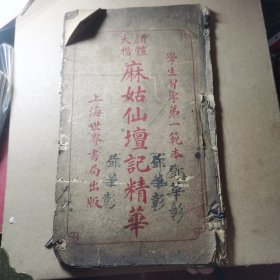 學生習字第一範本
鄧華彰
顏體
大楷
麻姑仙壇記精華
鄧華彰
鄧華彰
上海世界書局出版